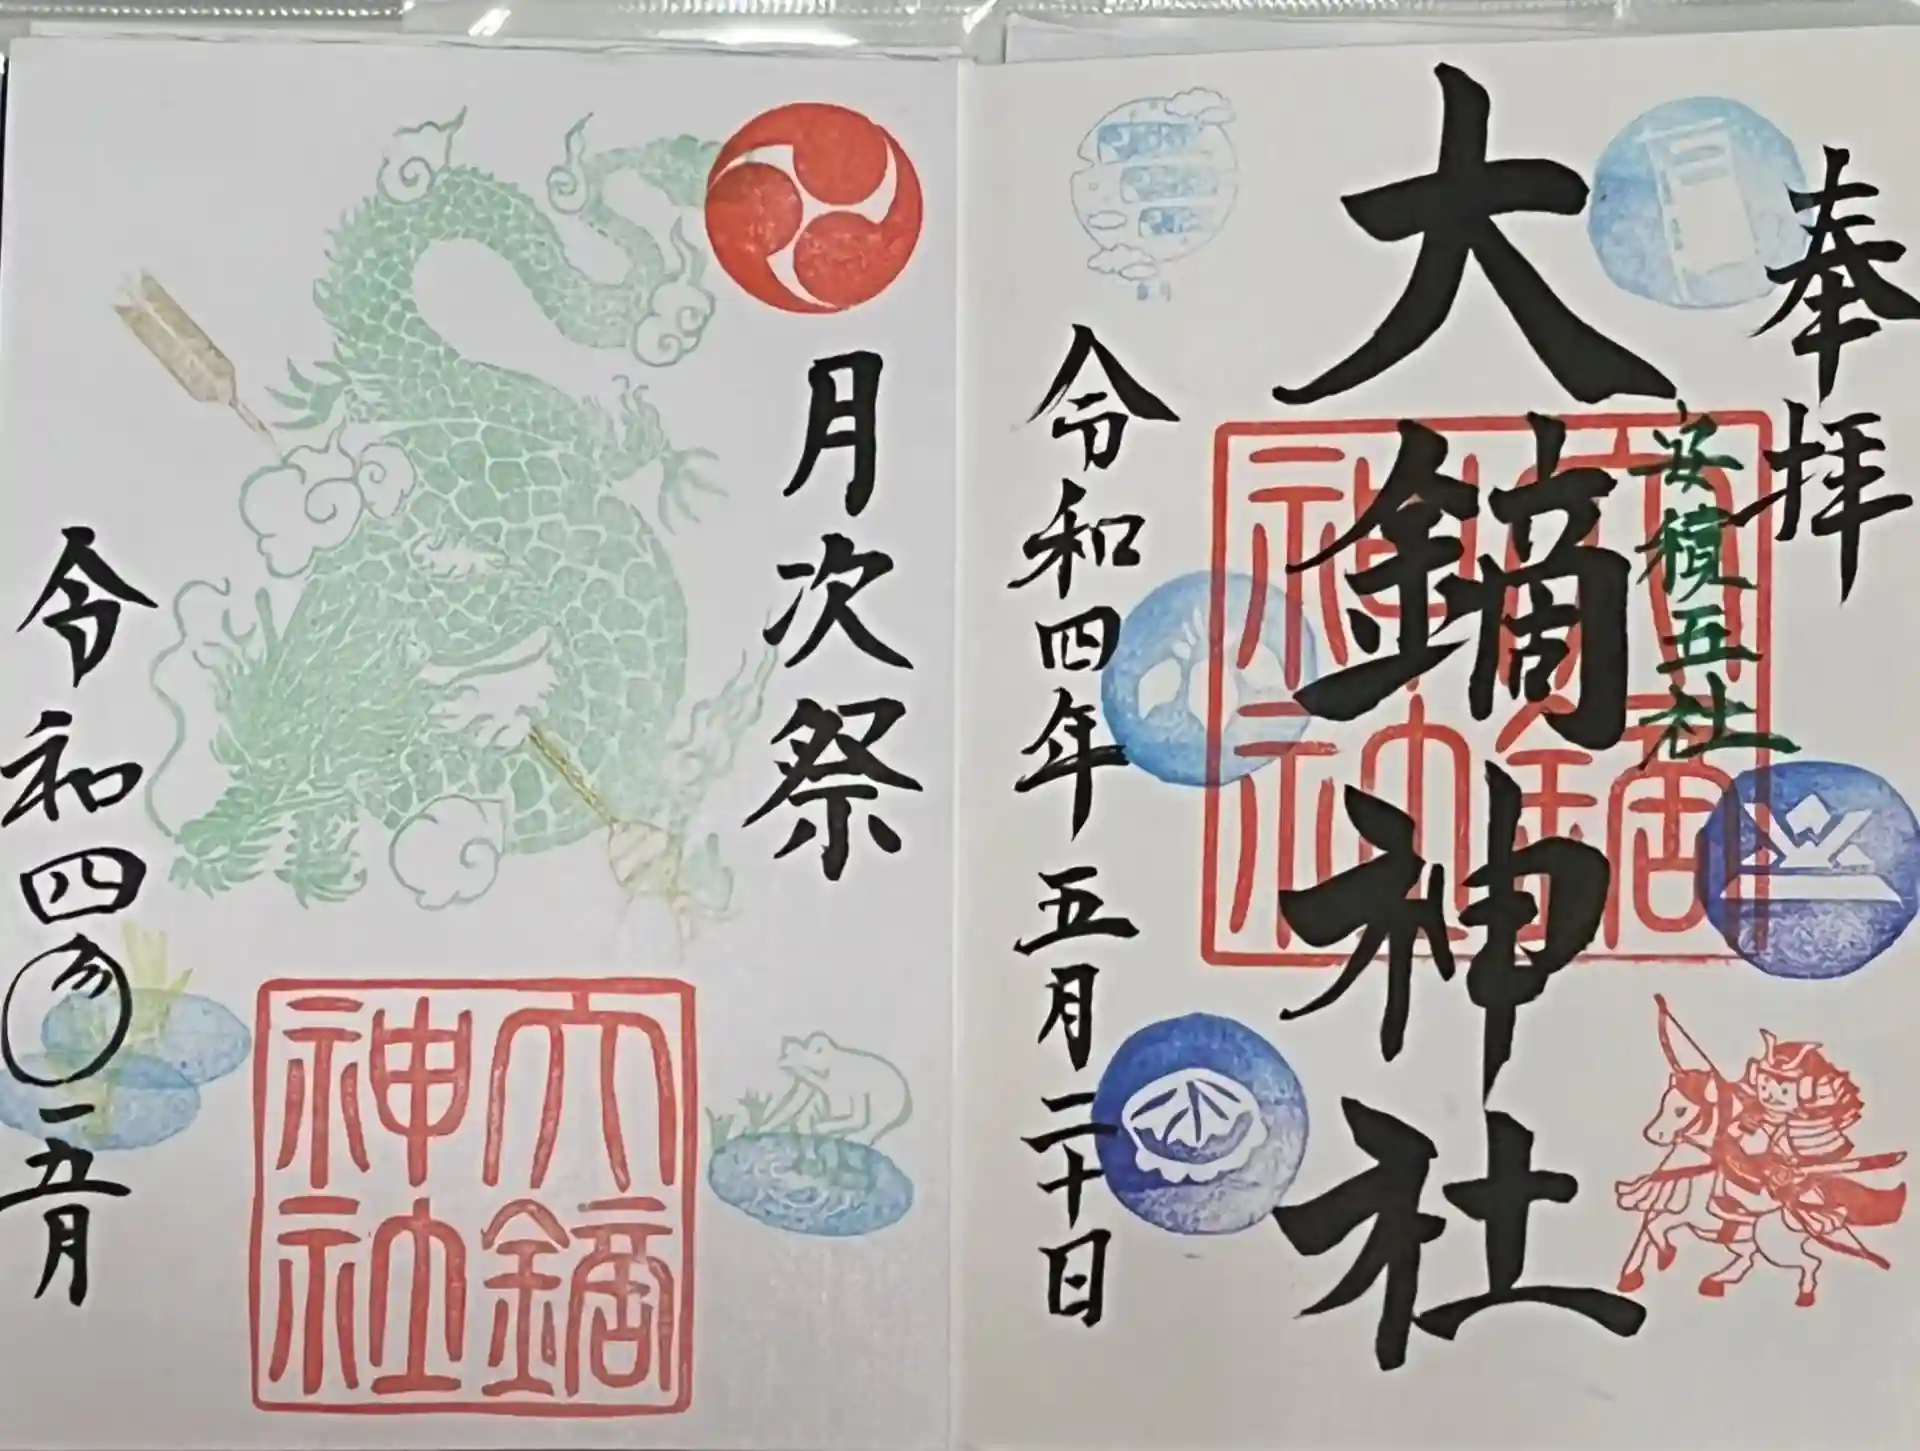 奉拝
安積五社
大鏑神社
大鏑神社
令和四年五月二十日
月次祭
大鏑神社
令和四
五月